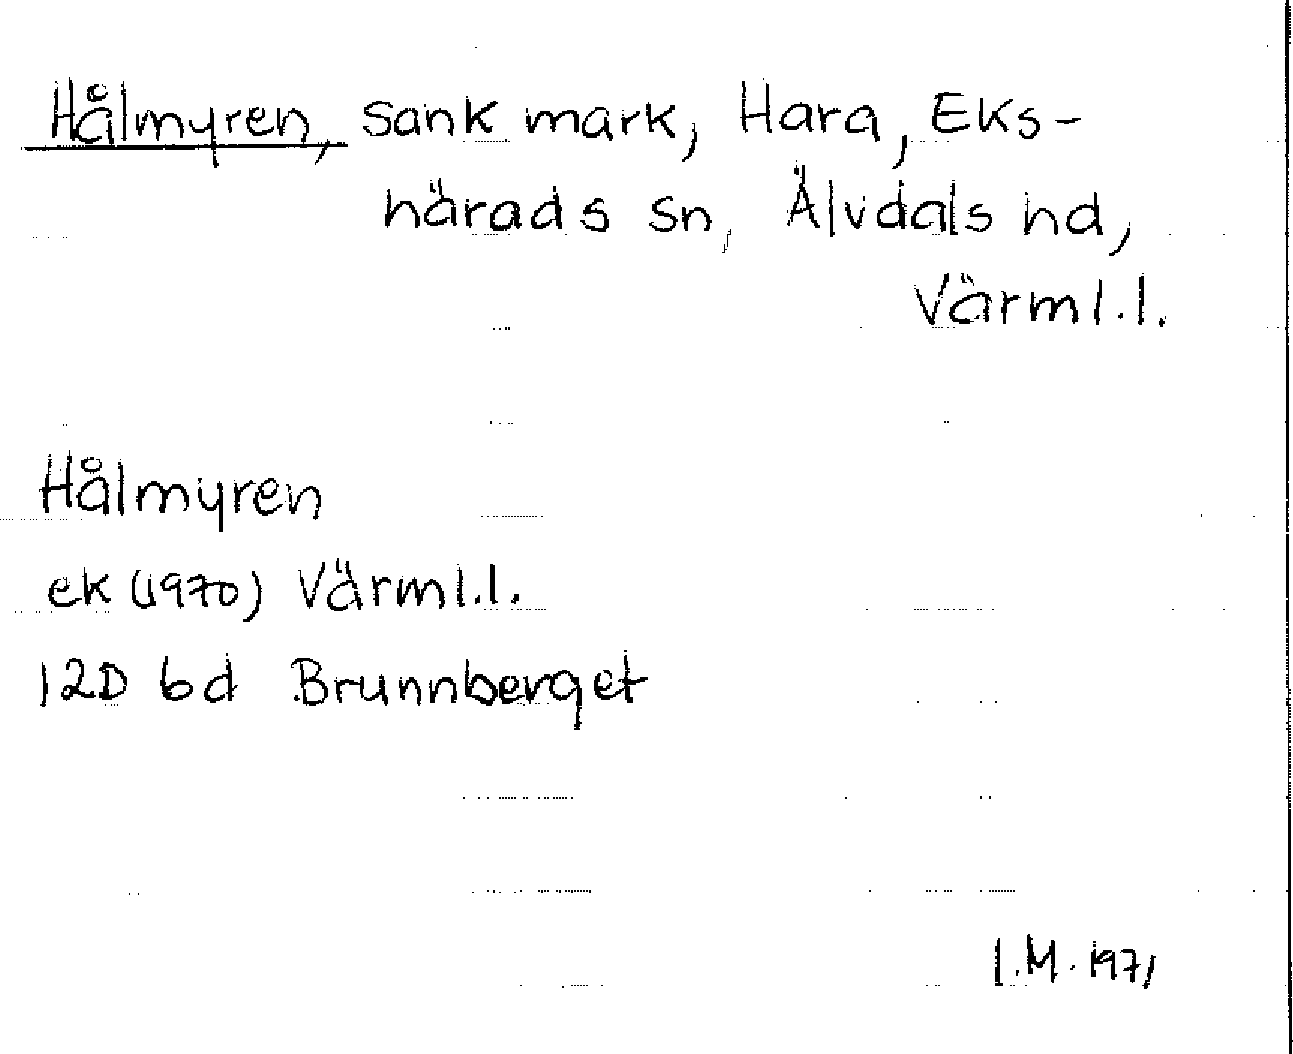 Hålmyren, sank mark, Hara, Eks-
härads sn, Älvdals hd,
Värml.l.
Hålmyren
ek (1970) Värml.l.
12D bd Brunnberget
I.M. 1971